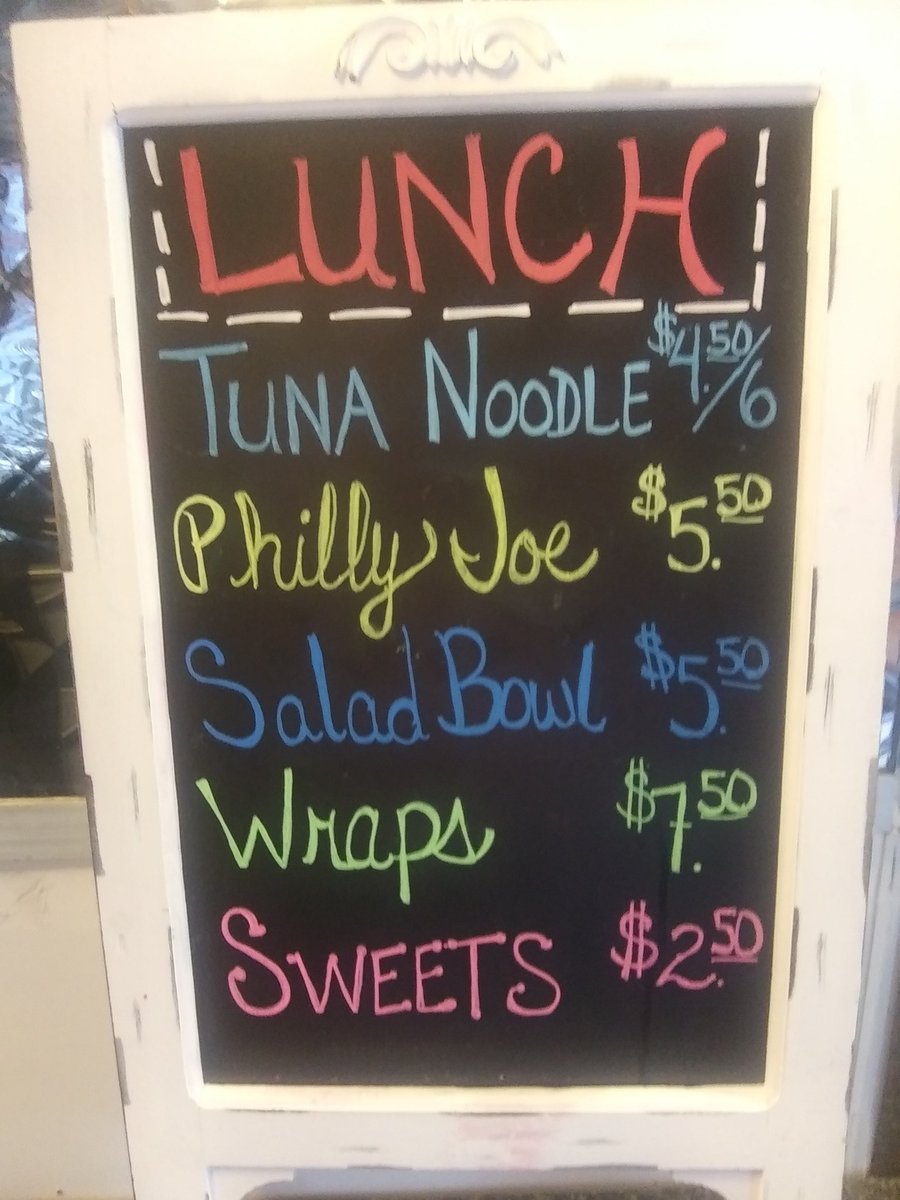 LUNCH
TUNA NOODLE $4.50/6
Philly Joe $5.50
Salad Bowl $5.50
Wraps $7.50
SWEETS $2.50